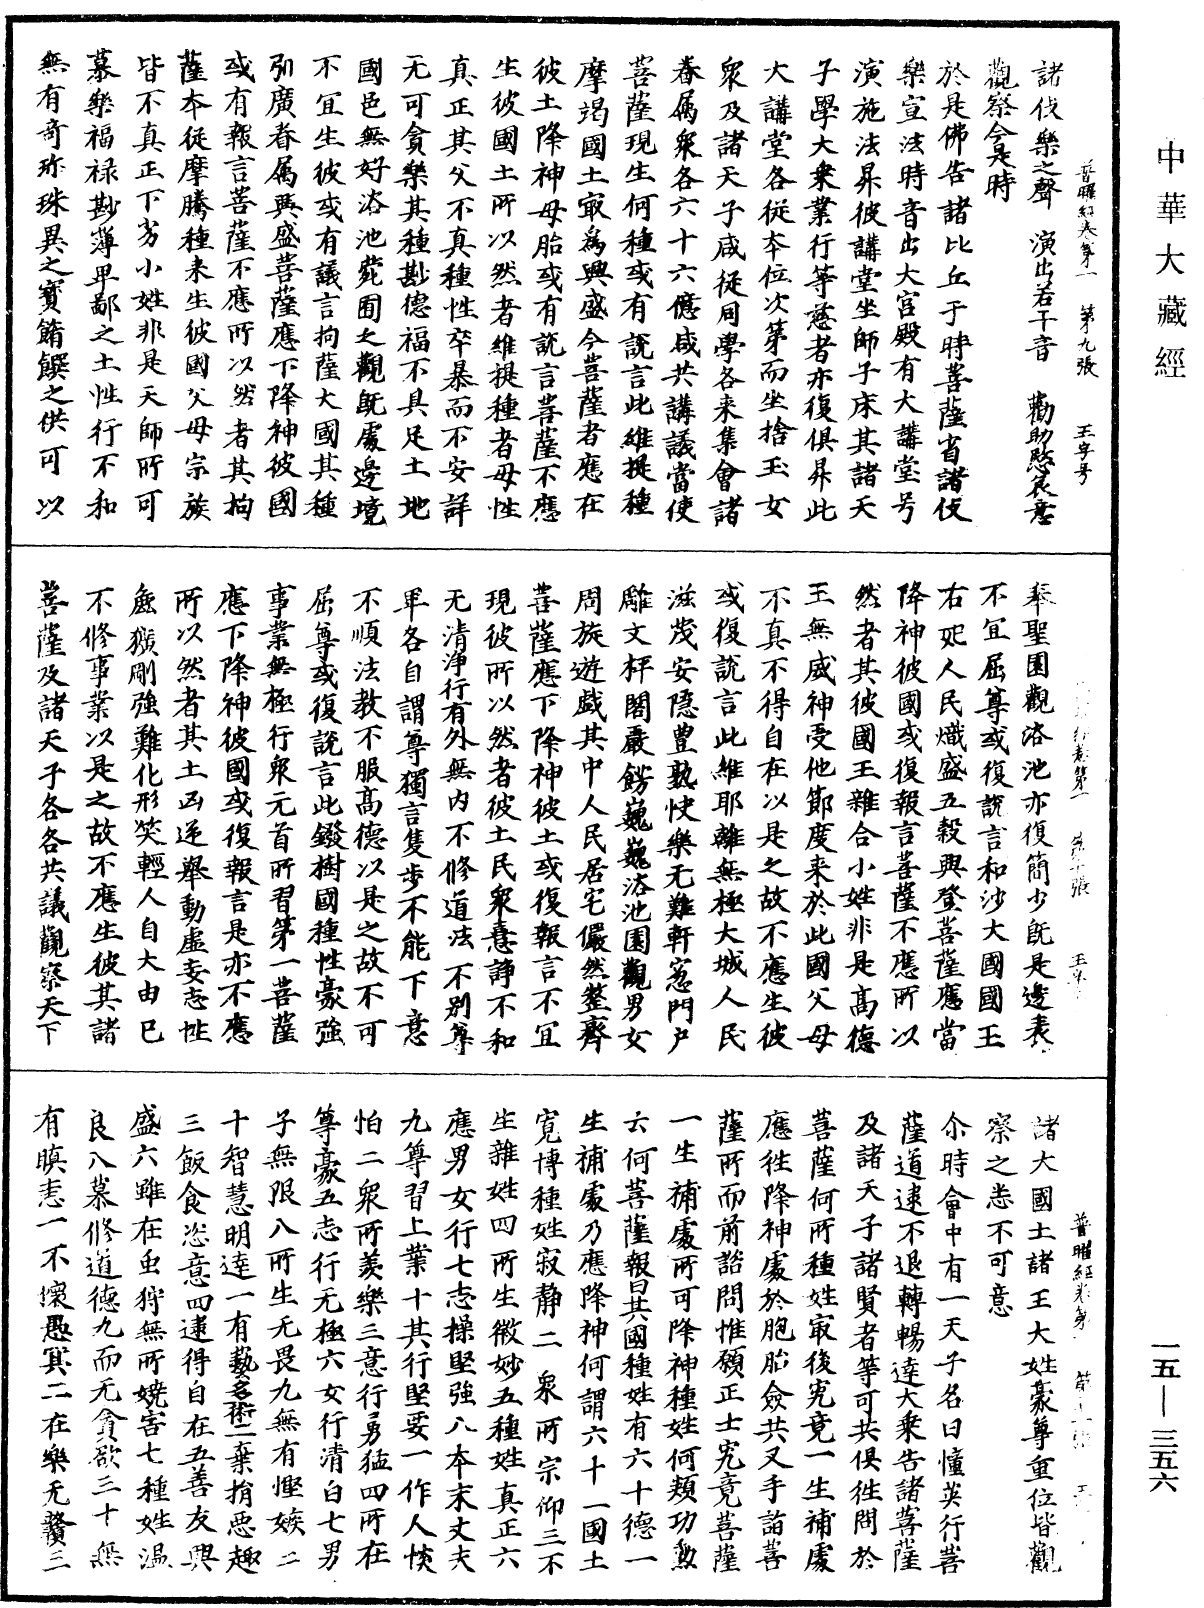 中華大藏經
諸伎樂之聲　演出若干音　勸助愍哀意
觀察今是時
於是佛告諸比丘于時菩薩省諸伎
樂宣法時音出大宮殿有大講堂号
演施法昇彼講堂坐師子床其諸天
子學大乘業行等慈者亦復俱昇此
大講堂各從本位次第而坐捨玉女
眾及諸天子咸從同學各來集會諸
眷属眾各六十六億咸共講議當使
菩薩現生何種或有說言此維提種
摩竭國土㝡為興盛今菩薩者應在
彼土降神母胎或有說言菩薩不應
生彼國土所以然者維提種者母性
真正其父不真種性卒暴而不安詳
无可貪樂其種尠德福不具足土地
國邑無好浴池菀囿之觀既處邊境
不宜生彼或有議言拘薩大國其種
引廣眷属興盛菩薩應下降神彼國
或有報言菩薩不應所以然者其拘
薩本從摩騰種來生彼國父母宗族
皆不真正下劣小姓非是天師所可
慕樂福禄尠薄卑鄙之土性行不和
無有奇珎珠異之寶餚饌之供可以
普曜經卷第一　第九張　王字号
奉聖園觀浴池亦復簡少既是邊表
不宜屈尊或復說言和沙大國國王
右妃人民熾盛五穀興登菩薩應當
降神彼國或復報言菩薩不應所以
然者其彼國王雜合小姓非是高德
王無威神受他節度来於此國父母
不真不得自在以是之故不應生彼
或復說言此維耶離無極大城人民
滋茂安隱豊熟快樂无難軒窓門户
雕文枰閣嚴餝巍巍浴池園觀男女
周旋遊戲其中人民居宅儼然整齊
菩薩應下降神彼土或復報言不宜
現彼所以然者彼土民眾意諍不和
无清淨行有外無内不修道法不别尊
卑各自謂尊獨言隻步不能下意
不順法教不服高德以是之故不可
屈尊或復說言此鏺樹國種性豪強
事業無極行眾元首所習第一菩薩
應下降神彼國或復報言是亦不應
所以然者其土凶逆舉動虚妄志性
麁獷剛強難化形笑輕人自大由已
不修事業以是之故不應生彼其諸
菩薩及諸天子各各共議觀察天下
諸大國土諸王大姓豪尊重位皆觀
察之悉不可意
尒時會中有一天子名曰懂英行菩
薩道逮不退轉暢達大乘告諸菩薩
及諸天子諸賢者等可共俱徃問於
菩薩何所種姓㝡後究竟一生補處
應徃降神處於胞胎僉共叉手詣菩
薩所而前諮問惟願正士究竟菩薩
一生補處所可降神種姓何類功勲
云何菩薩報曰其國種姓有六十德一
生補處乃應降神何謂六十一國土
寛博種姓寂静二眾所宗仰三不
生雜姓四所生微妙五種姓真正六
應男女行七志操堅強八本末丈夫
九尊習上業十其行堅要一作人惔
怕二眾所羡樂三意行勇猛四所在
尊豪五志行无極六女行清白七男
子無限八所生无畏九無有慳嫉二
十智慧明達一有藝名術二棄捐惡趣
三飯食恣意四逮得自在五善友興
盛六雖在虫狩無所嬈害七種姓温
良八慕修道德九而无貪欲三十無
有瞋恚一不懷愚冥二在樂无贅三
一五—三五六